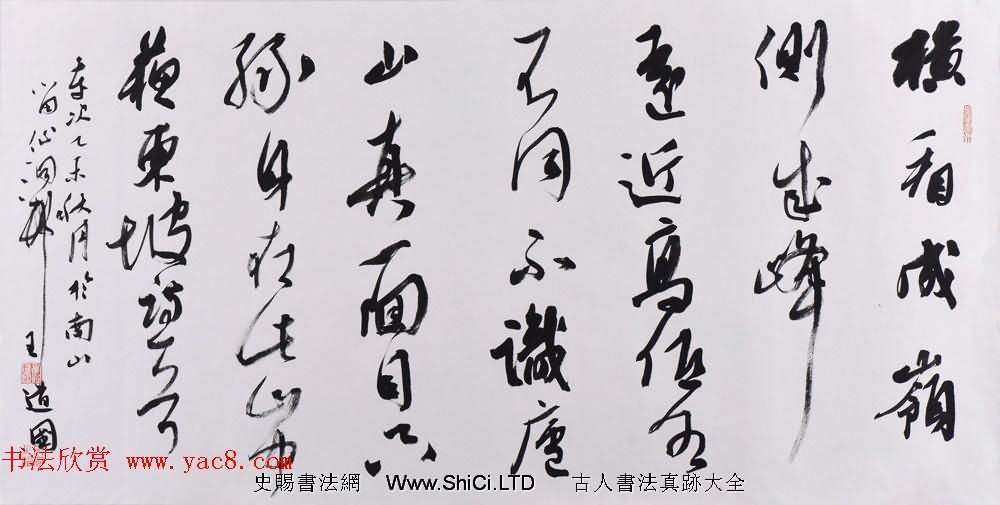 橫看成嶺
側成峰
遠近高低各
不同不識廬
山真面目只
緣身在此山中
蘇東坡詩一首
歲次乙未秋月於南山
留仙洞 王道國
书法欣赏 www.yac8.com
史賜書法網 Www.ShiCi.LTD 古人書法真跡大全